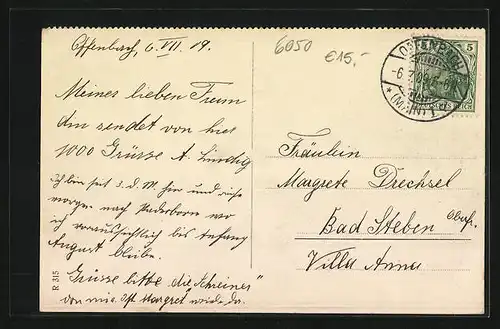 Offenbach, 6. VII. 09.
6050
€15,-
5
OFFENBACH
(MAIN)
Meiner lieben Freun
din sendet von hier
1000 Grüsse A. Lündig
Ich bin seit 3. d. M. hier und reise
morgen nach Paderborn wo
ich voraussichtlich bis Anfang
August bleibe.
Grüsse bitte die "Schreiner"
von mir. Ist "Margret" wieder da.
Fräulein
Margrete Drechsel
Bad Steben Oberfr.
Villa Anna
R 315